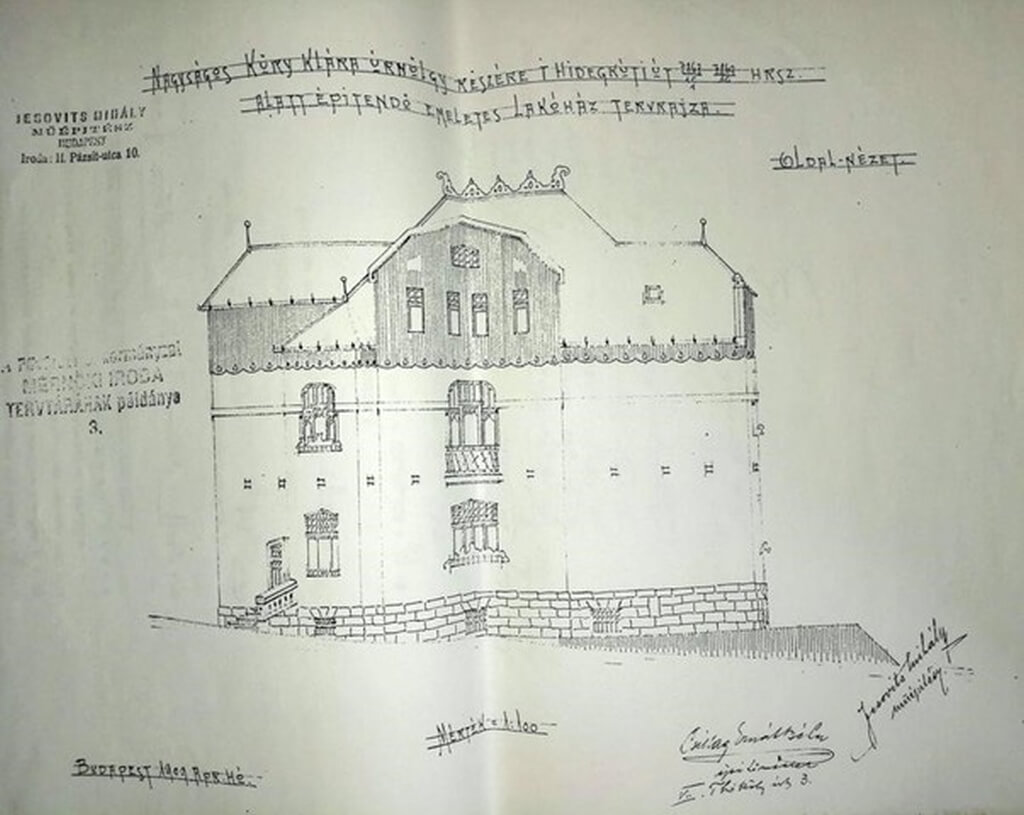 NAGYSÁGOS KÜRY KLÁRA ÚRHÖLGY RÉSZÉRE I HIDEGKÚTI ÚT HRSZ.
ALATT ÉPÍTENDŐ EMELETES LAKÓHÁZ TERVRAJZA.
JESOVITS MIHÁLY
MŰÉPITÉSZ
BUDAPEST
Iroda: II. Pázsit-utca 10.
OLDAL-NÉZET.
MÉRNÖKI IRODA
TERVTÁRÁNAK példánya
3.
MÉRTÉK = 1:100
BUDAPEST 1909 ÁPR. HÓ.
Jesovits Mihály
műépítész
Csillag
V. Thököly út 3.